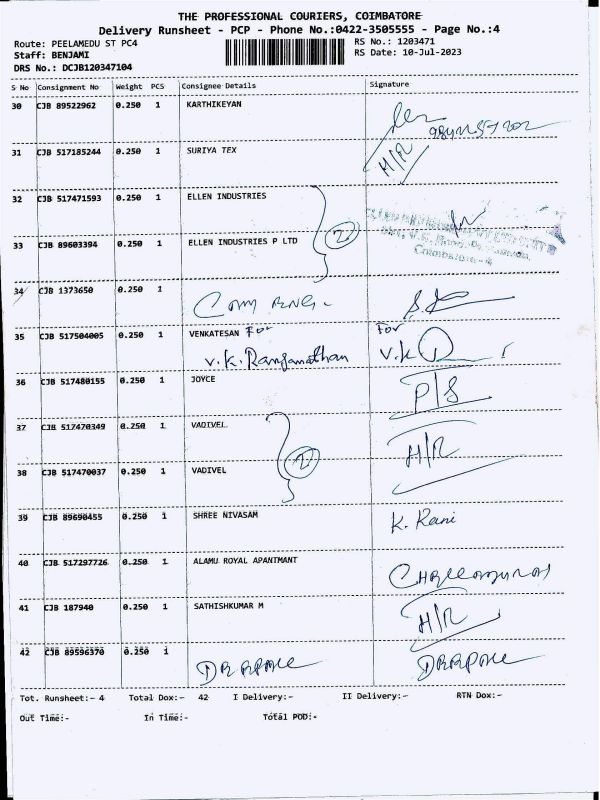 THE PROFESSIONAL COURIERS, COIMBATORE
Delivery Runsheet - PCP - Phone No.:0422-3505555 - Page No.:4
Route: PEELAMEDU ST PC4
RS No.: 1203471
Staff: BENJAMI
RS Date: 10-Jul-2023
DRS No.: DCJB120347104
S No Consignment No Weight PCS Consignee Details Signature
30 CJB 89522962 0.250 1 KARTHIKEYAN
31 CJB 517185244 0.250 1 SURIYA TEX H/R
32 CJB 517471593 0.250 1 ELLEN INDUSTRIES
2
33 CJB 89603394 0.250 1 ELLEN INDUSTRIES P LTD
34 CJB 1373650 0.250 1
35 CJB 517504005 0.250 1 VENKATESAN For For
V.K. Ranganathan V.K
36 CJB 517480155 0.250 1 JOYCE P/S
37 CJB 517470349 0.250 1 VADIVEL H/R
2
38 CJB 517470037 0.250 1 VADIVEL
39 CJB 89690455 0.250 1 SHREE NIVASAM K. Rani
40 CJB 517297726 0.250 1 ALAMU ROYAL APANTMANT
41 CJB 187940 0.250 1 SATHISHKUMAR M H/R
42 CJB 89596370 0.250 1
Tot. Runsheet:- 4 Total Dox:- 42 I Delivery:- II Delivery:- RTN Dox:-
Out Time:- In Time:- Total POD:-